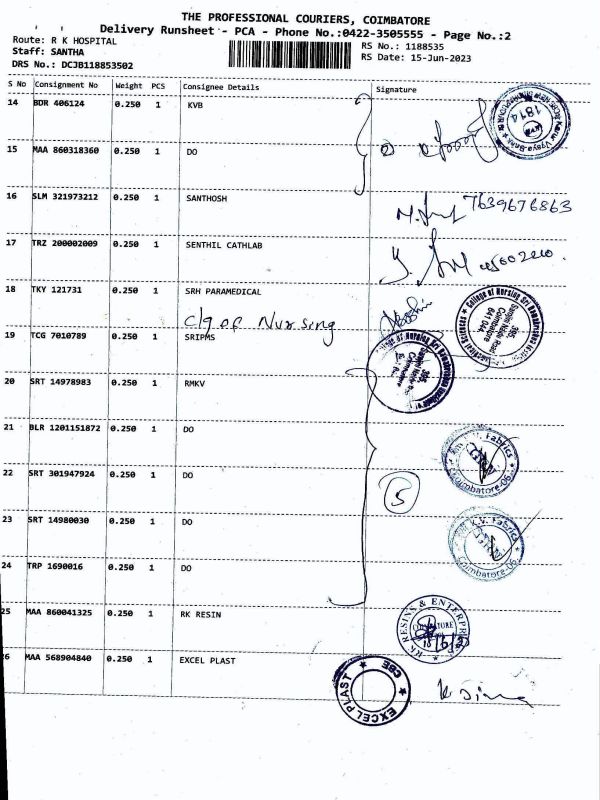 THE PROFESSIONAL COURIERS, COIMBATORE
Delivery Runsheet - PCA - Phone No.:0422-3505555 - Page No.:2
Route: R K HOSPITAL
Staff: SANTHA
DRS No.: DCJB118853502
RS No.: 1188535
RS Date: 15-Jun-2023
S No Consignment No Weight PCS Consignee Details Signature
14 BDR 406124 0.250 1 KVB
15 MAA 860318360 0.250 1 DO
16 SLM 321973212 0.250 1 SANTHOSH
7639676863
17 TRZ 200002009 0.250 1 SENTHIL CATHLAB
18 TKY 121731 0.250 1 SRH PARAMEDICAL
Clg of Nursing
19 TCG 7010789 0.250 1 SRIPMS
20 SRT 14978983 0.250 1 RMKV
21 BLR 1201151872 0.250 1 DO
22 SRT 301947924 0.250 1 DO
5
23 SRT 14980030 0.250 1 DO
24 TRP 1690016 0.250 1 DO
25 MAA 860041325 0.250 1 RK RESIN
RK RESINS & ENTERPRISES
26 MAA 568904840 0.250 1 EXCEL PLAST
EXCEL PLAST CBE